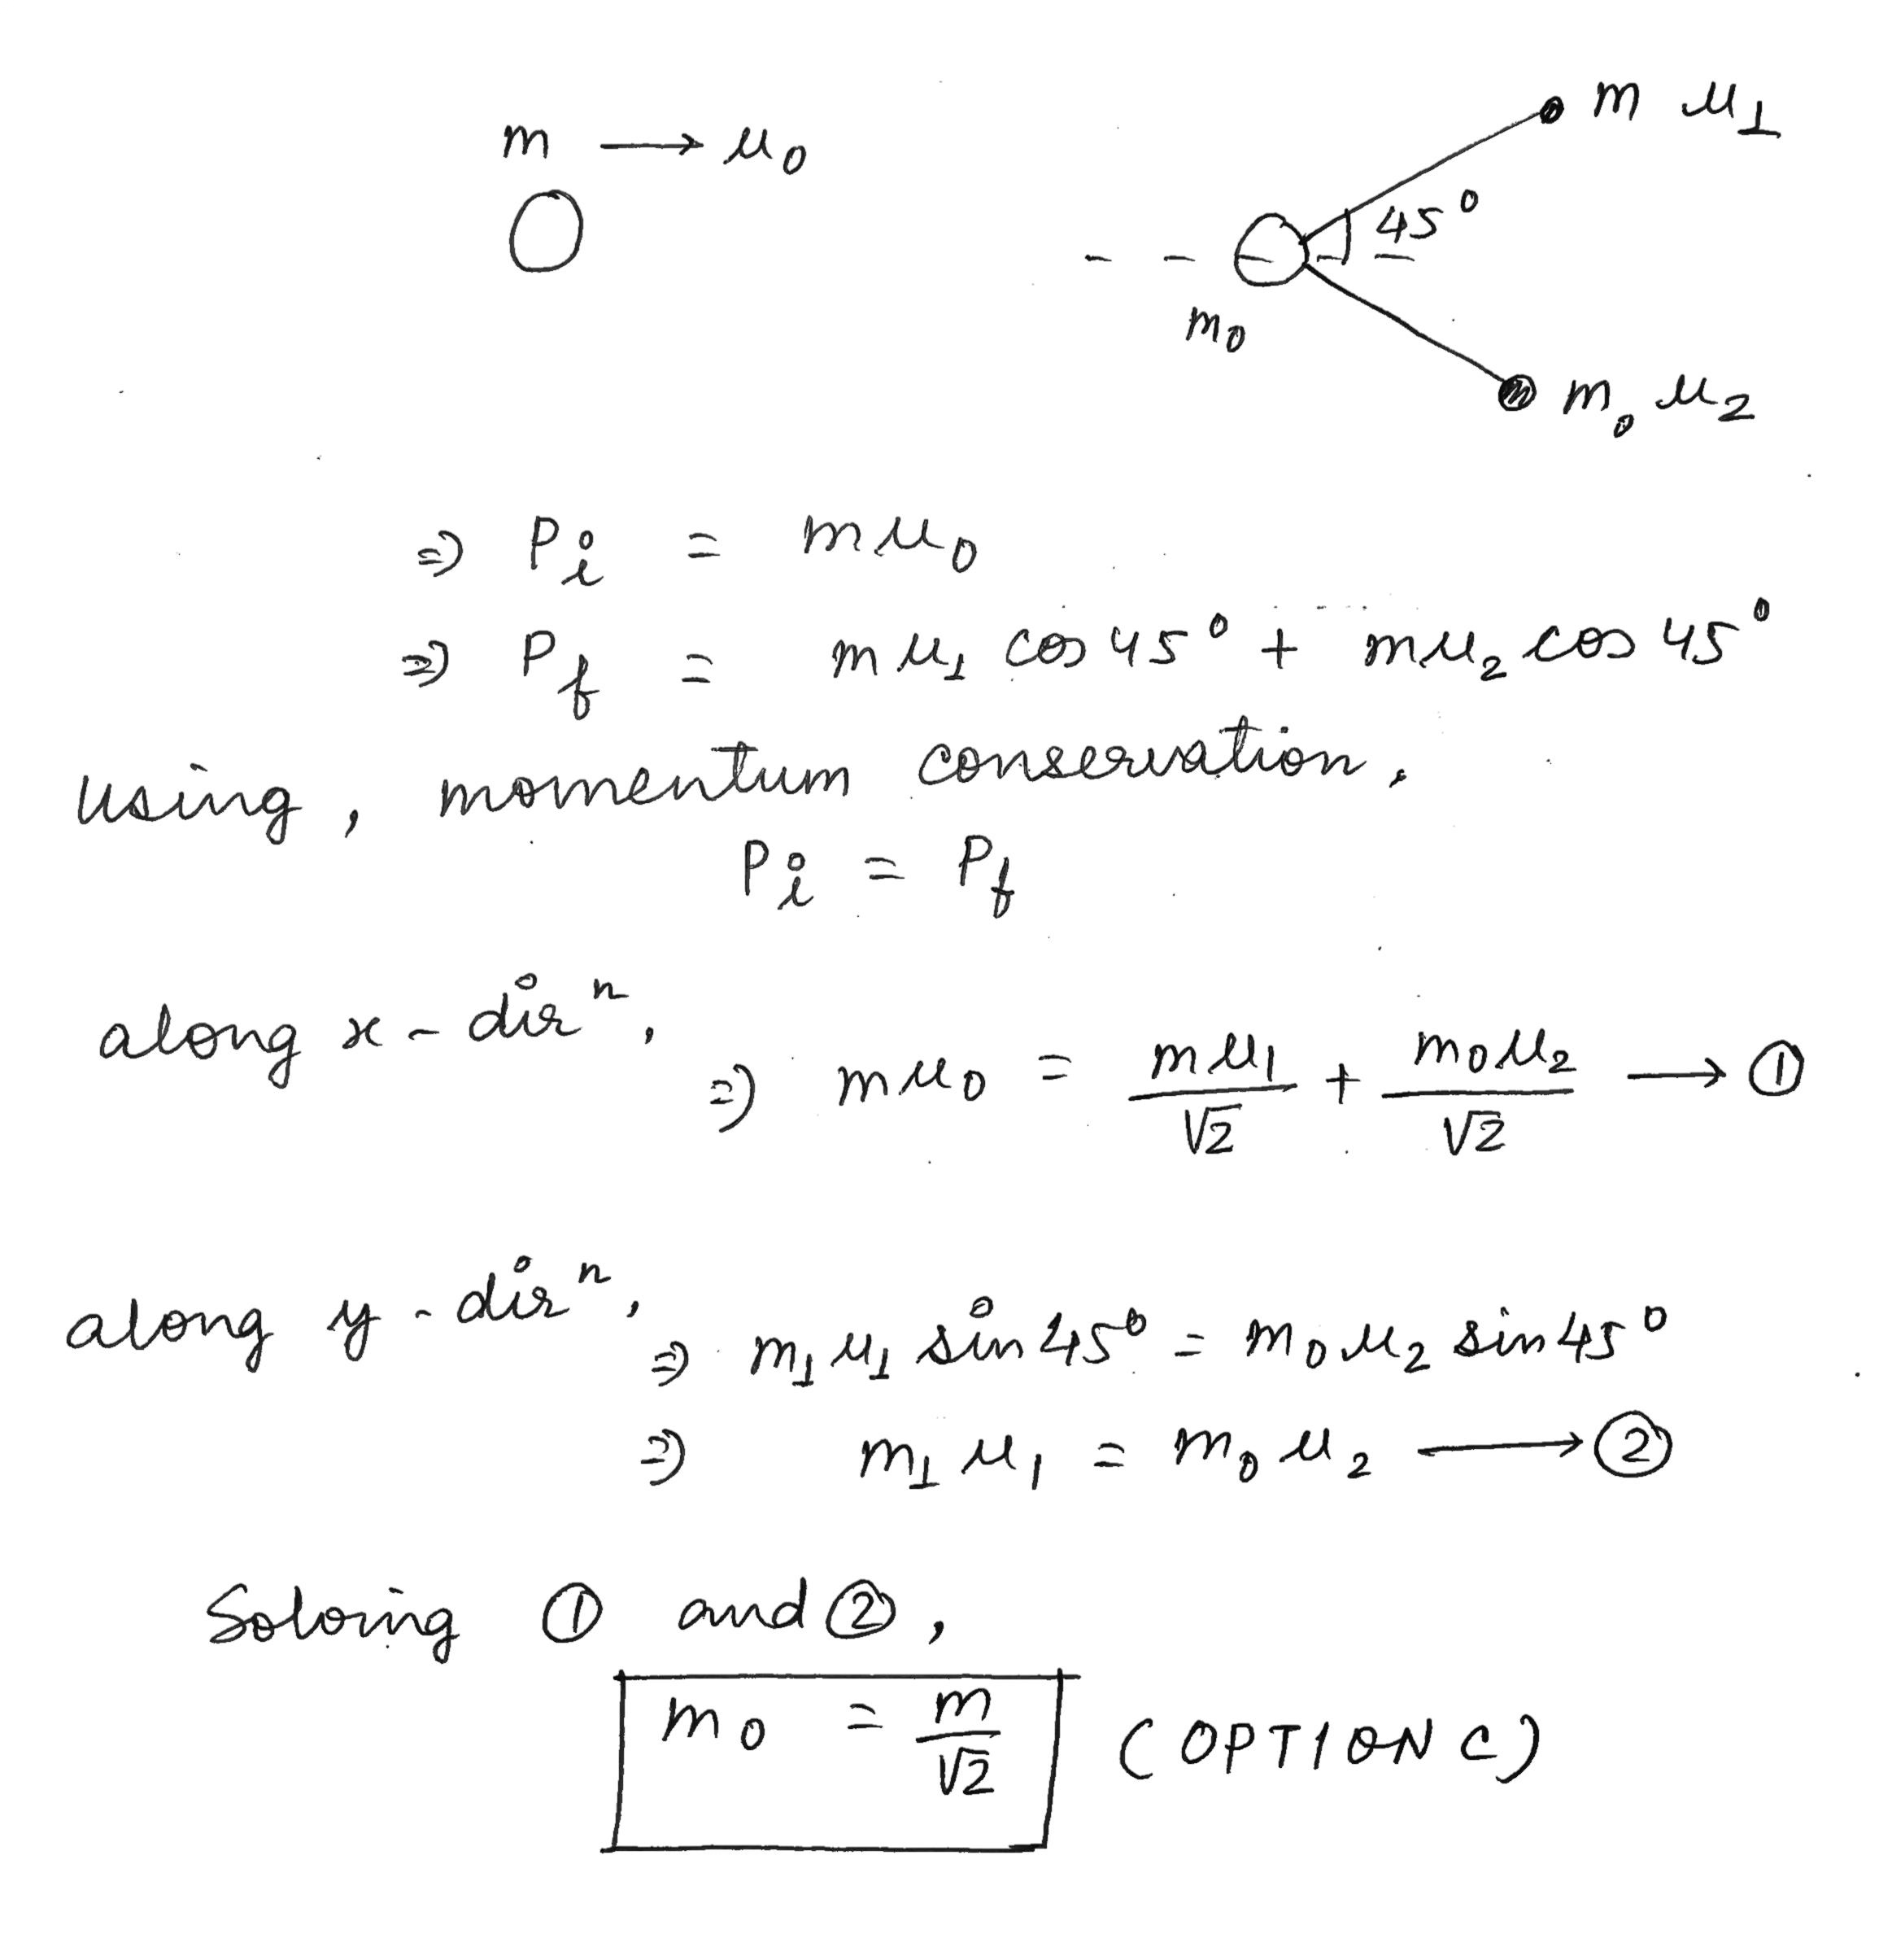 m → u₀
m u₁
45°
m₀
m₀ u₂
⇒ Pi = mu₀
⇒ Pf = mu₁ cos 45° + mu₂ cos 45°
using, momentum conservation,
Pi = Pf
along x-dirⁿ,
⇒ mu₀ = mu₁/√2 + m₀u₂/√2 → ①
along y-dirⁿ,
⇒ m₁u₁ sin 45° = m₀u₂ sin 45°
⇒ m₁u₁ = m₀u₂ → ②
Solving ① and ②,
m₀ = m/√2 (OPTION C)